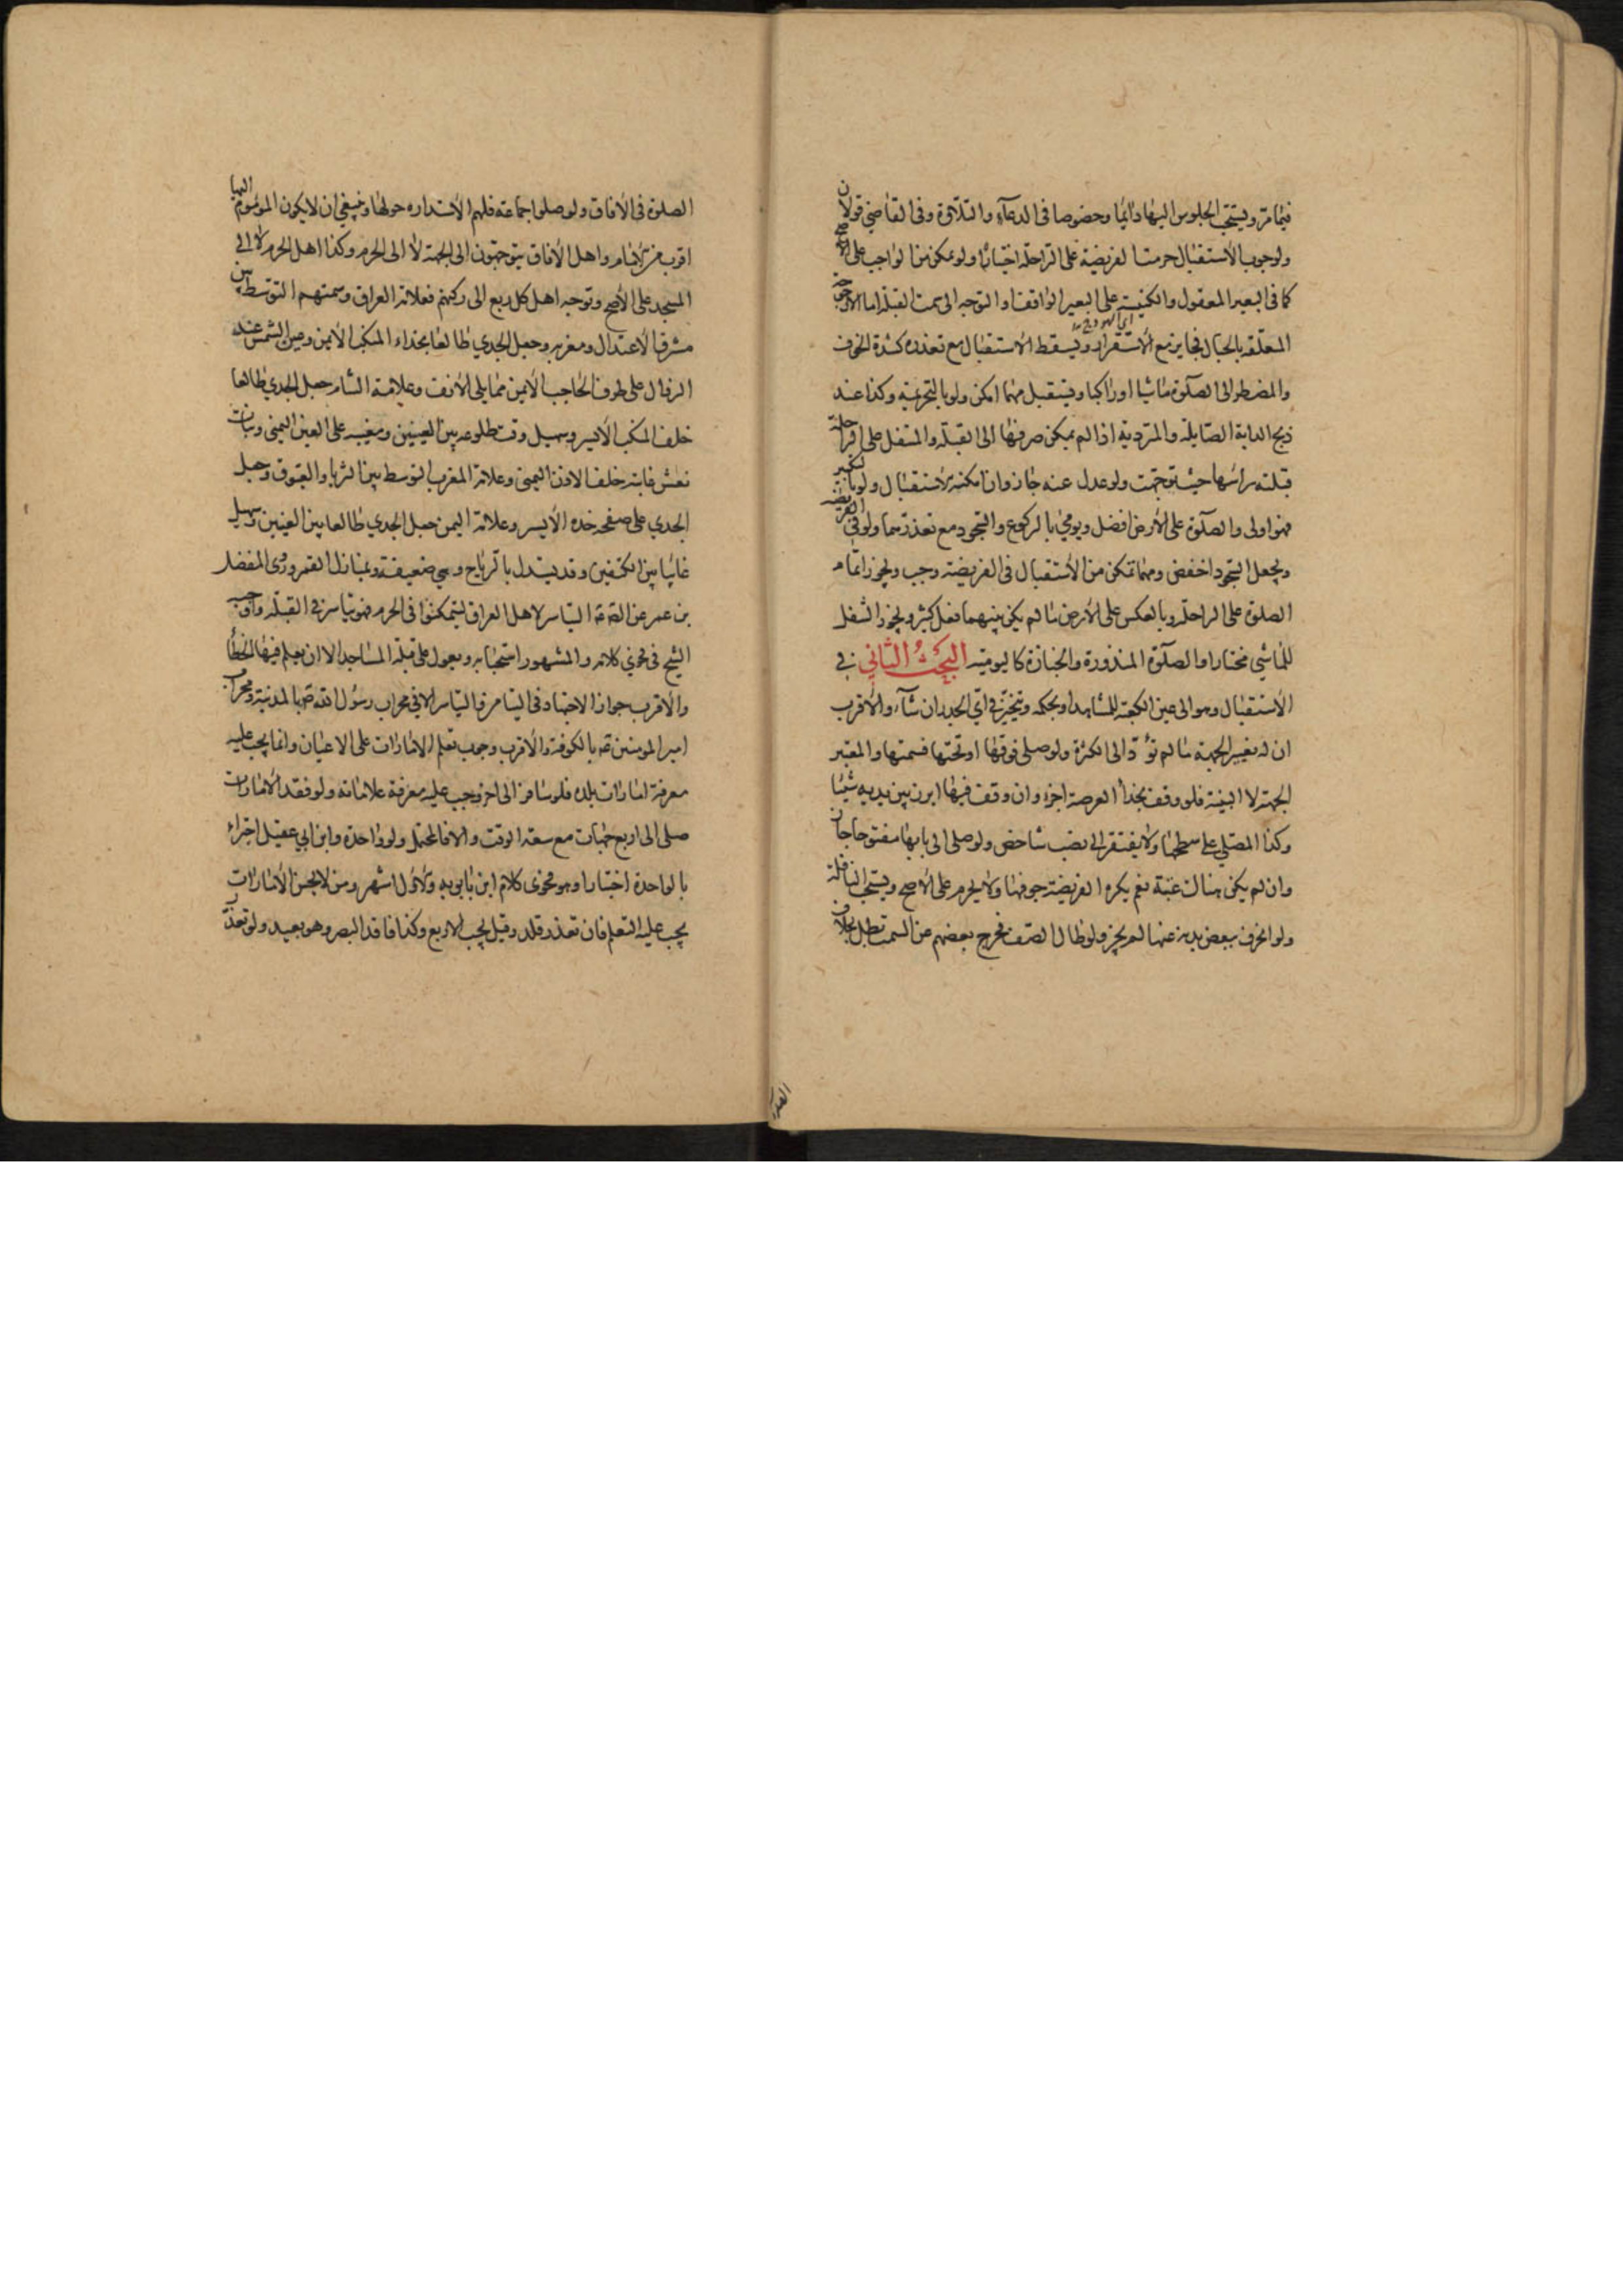 فيما مرّ ويستحب الجلوس اليها دائما وخصوصا فى الدعاء والتلاوة وفى القاضي قولان
ولوجوب الاستقبال حرمت الفريضة على الراحلة اختيارا ولو تمكن من الواجب على الاصح
كما فى البعير المعقول والكنيسة على البعير الواقف او التوجه الى سمت القبلة اما الارجوحة
المعلقة بالحبال فجايز مع الاستقرار ويسقط الاستقبال مع تعذره كشدة الخوف
والمضطر الى الصلوة ماشيا او راكبا ويستقبل مهما امكن ولو بالتحريمة وكذا عند
ذبح الدابة الصايلة والمتردية اذا لم يمكن صرفها الى القبلة والمتنفل على الراحلة
قبلته راسها حيث توجهت ولو عدل عنه جاز وان امكنه الاستقبال ولو بالتكبير
فهو اولى والصلوة على الارض افضل ويومئ بالركوع والسجود مع تعذرهما ولو فى الفريضة
ويجعل السجود اخفض ومهما تمكن من الاستقبال فى الفريضة وجب ويجوز اتمام
الصلوة على الراحلة وبالعكس على الارض ما لم يكن بينهما فعل كثير ويجوز التنفل
للماشي مختارا والصلوة المنذورة والجنازة كاليومية البحث الثاني فى
الاستقبال وهو الى عين الكعبة للمشاهد او بحكمه ويتخير فى اي الجدران شاء والاقرب
ان له تغيير الجهة ما لم تؤدّ الى الكثرة ولو صلى فوقها او تحتها فسمتها والمعتبر
الجهة لا البنية فلو وقف بحذاء العرصة اجزاء وان وقف فيها ابرز بين يديه شيئا
وكذا المصلى على سطحها ولا يفتقر الى نصب شاخص ولو صلى الى بابها مفتوحا جاز
وان لم يكن هناك عتبة نعم يكره الفريضة جوفها ولا يحرم على الاصح ويستحب النافلة
ولو انحرف ببعض بدنه عنها لم يجز ولو طال الصف فخرج بعضهم عن السمت بطل بخلاف
الصلوة فى الافاق ولو صلوا جماعة فلهم الاستداره حولها وينبغي ان لا يكون المؤموم اليها
اقرب من الامام واهل الافاق يتوجهون الى الجهة لا الى الحرم وكذا اهل الحرم لا الى
المسجد على الاصح وتوجه اهل كل ربع الى ركنهم فعلامة العراق وسمتهم التوسط بين
مشرق الاعتدال ومغربه وجعل الجدي طالعا بحذاء المنكب الايمن وعين الشمس عند
الزوال على طرف الحاجب الايمن مما يلي الانف وعلامة الشام جعل الجدي طالعا
خلف المنكب الايسر وسهيل وقت طلوعه بين العينين ومغيبه على العين اليمنى وبنات
نعش غايبة خلف الاذن اليمنى وعلامة المغرب التوسط بين الثريا والعيوق وجعل
الجدي على صفحة خده الايسر وعلامة اليمن جعل الجدي طالعا بين العينين وسهيل
غايبا بين الكتفين وقد يستدل بالرياح وهي ضعيفة وبمنازل القمر وروى المفضل
بن عمر عن الصادق التياسر لاهل العراق ليتمكنوا فى الحرم فهو تياسر فى القبلة واوجبه
الشيخ فى فحوي كلامه والمشهور استحبابه ويعول على قبلة المساجد الا ان يعلم فيها الخطأ
والاقرب جواز الاجتهاد فى التيامن والتياسر الا في محراب رسول الله ص بالمدينة ومحراب
امير المومنين ع بالكوفة والاقرب وجوب تعلم الامارات على الاعيان وانما يجب عليه
معرفة امارات بلده فلو سافر الى اخر وجب عليه معرفة علاماته ولو فقد الامارات
صلى الى اربع جهات مع سعة الوقت والا فالمحتمل ولو واحدة وابن ابي عقيل اجتزاء
بالواحدة اختيارا وهو فحوى كلام ابن بابويه والاول اشهر ومن لا يحسن الامارات
يجب عليه التعلم فان تعذر قلد وقيل يجب الاربع وكذا فاقد البصر وهو بعيد ولو تعذر